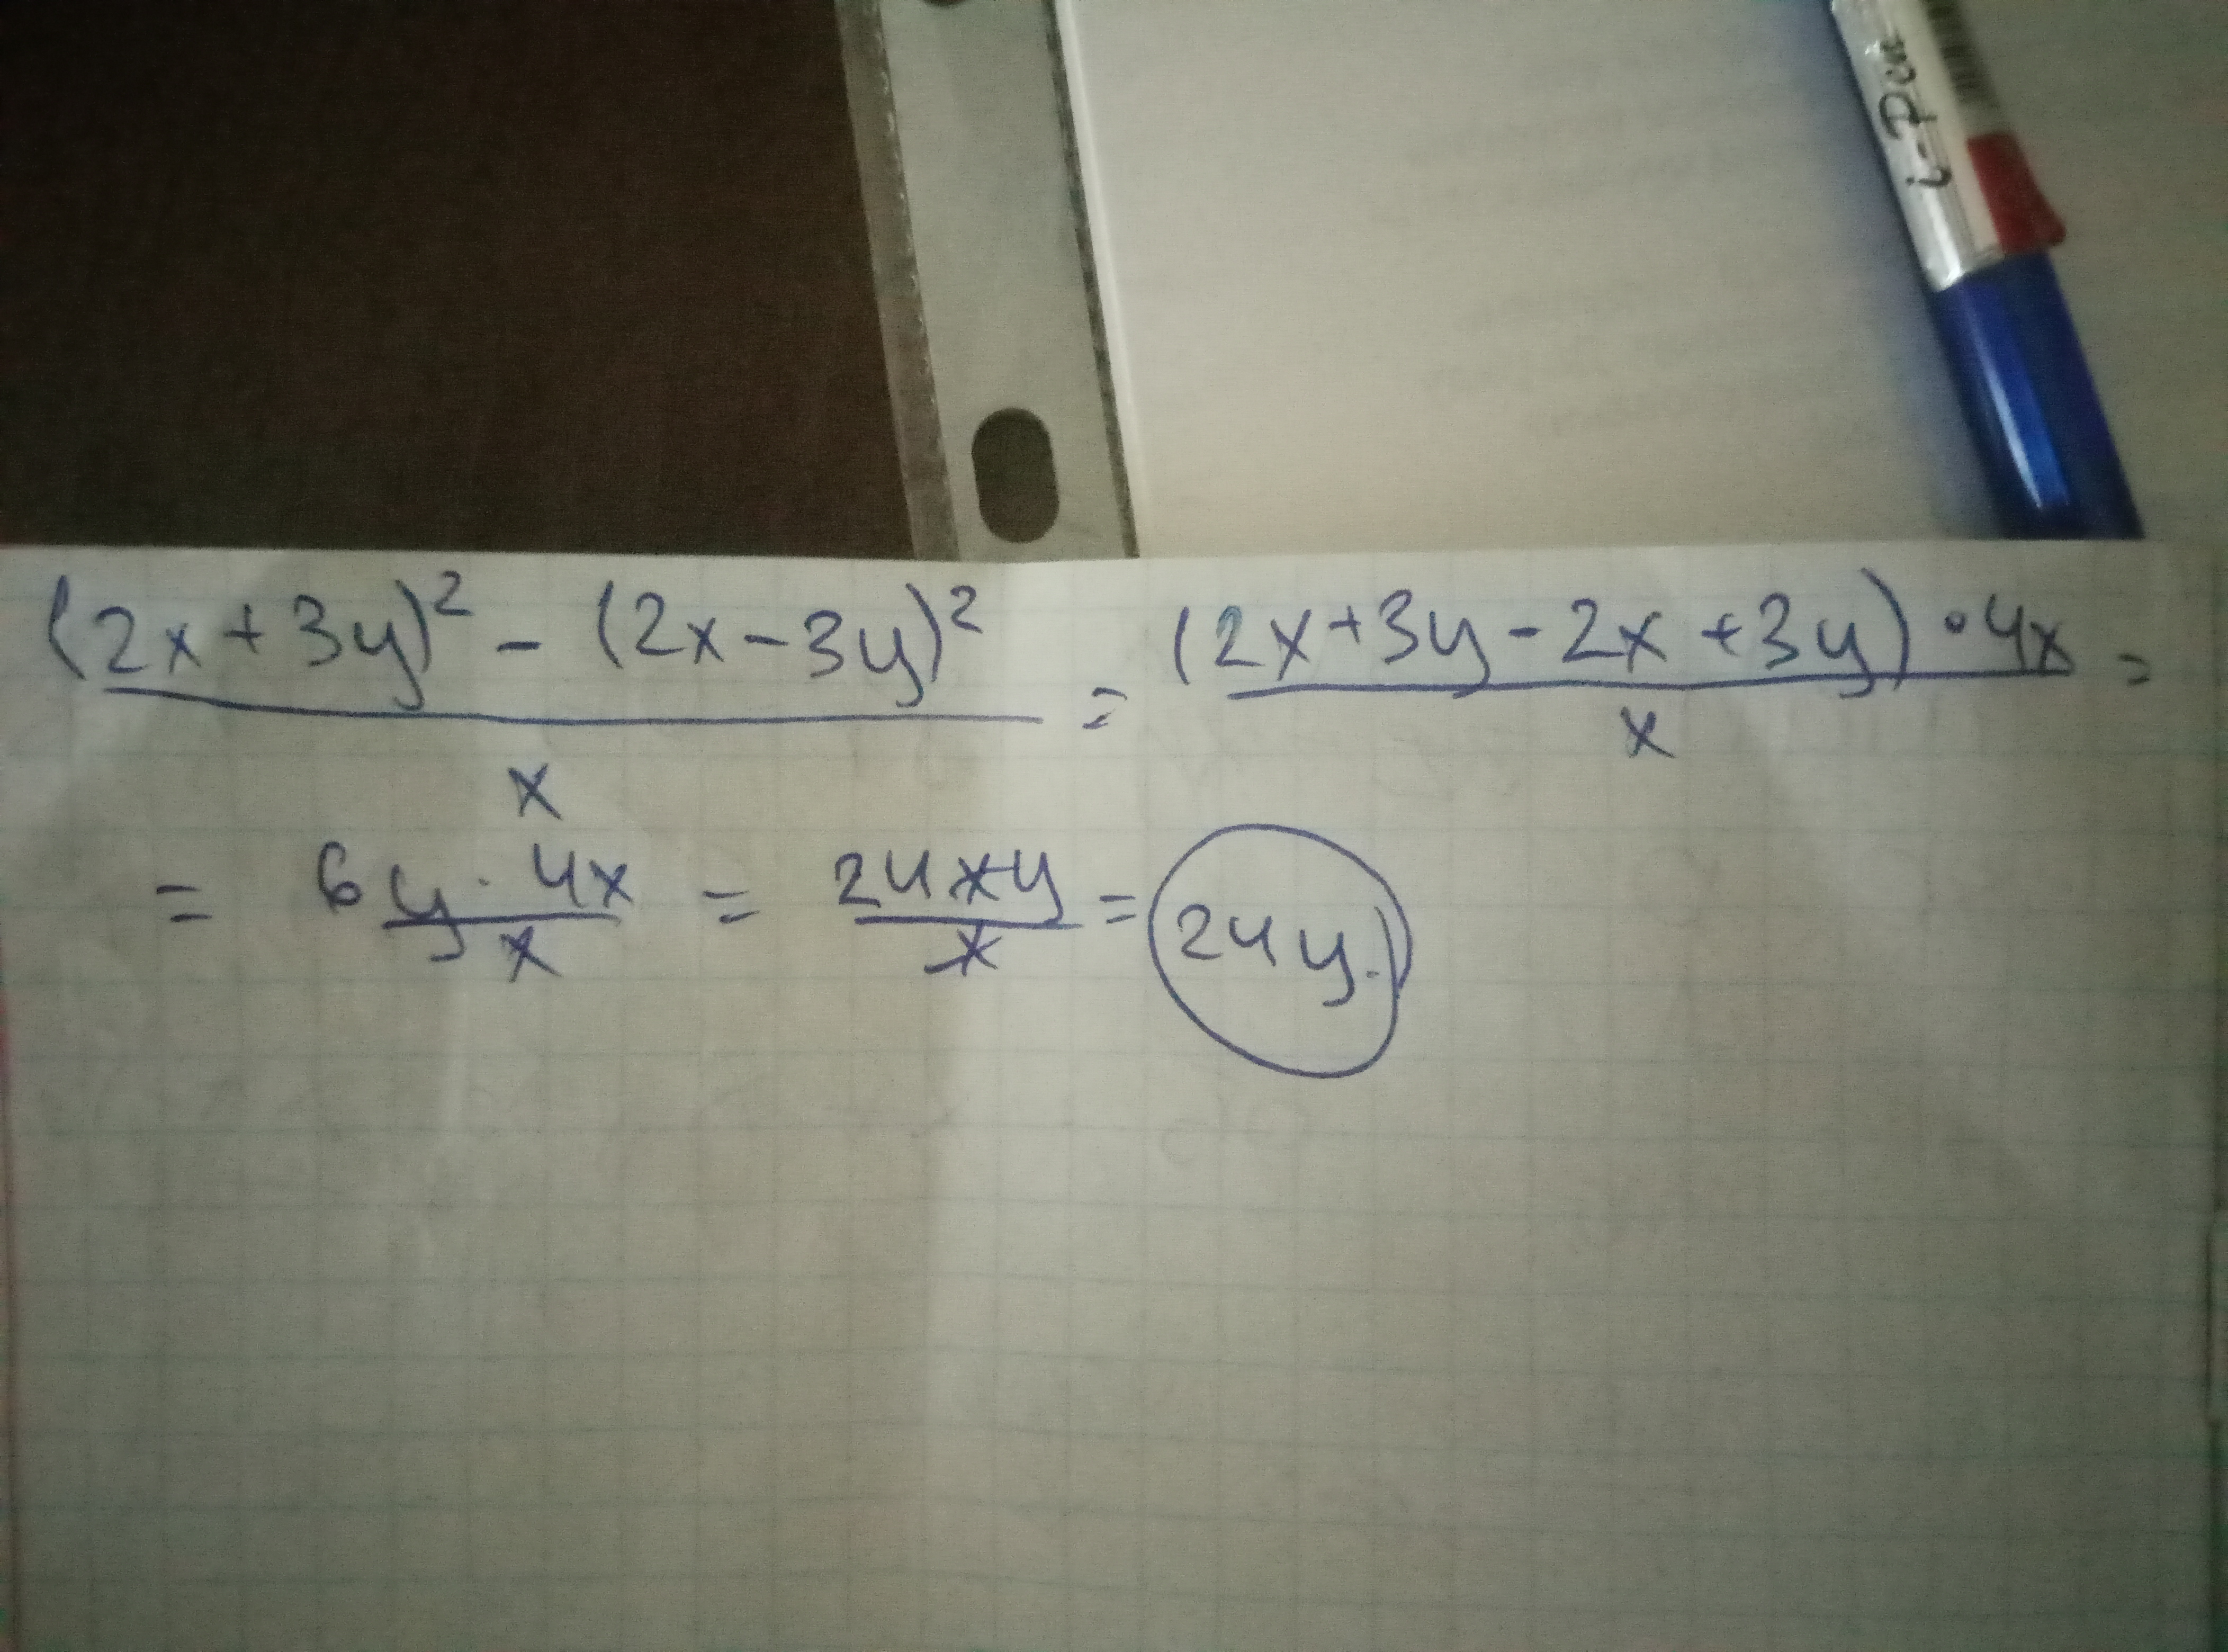 i-Pen
(2x+3y)² - (2x-3y)² / x = (2x+3y-2x+3y)·4x / x =
= 6y·4x / x = 24xy / x = 24y.